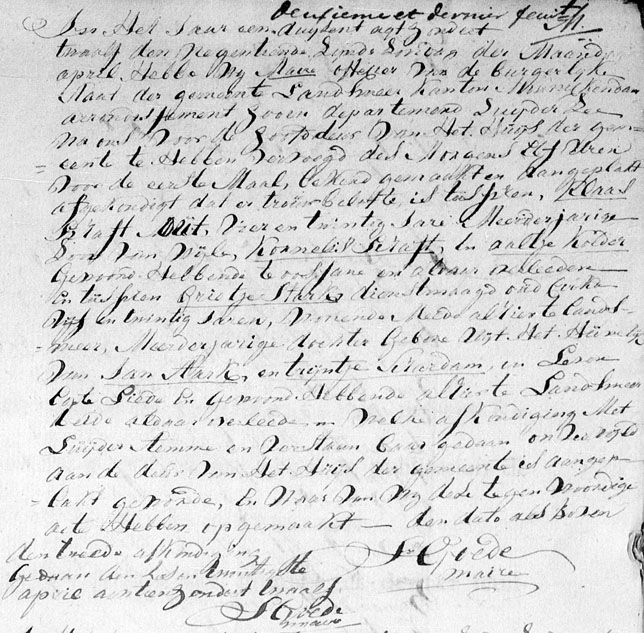 deuxieme et dernier feuillet
In Het Jaar een duysent agt Hondert
twaalf den Negentiende Zynde Sondag der Maand
april Hebbe Wy Maire offisier van de burgerlyk
Staat der gemeente Landsmeer kanton
arrondissement Hoorn departement Zuyder Zee
na ons voor de Hoofddeur van Het Huys der gem-
= eente te Hebben vervoegd des Morgens Elf Uren
voor de eerste Maal, bekend gemaakt en aangeplakt
afgekondigt dat er trouw belofte is tusschen, Klaas
Kraft Vier en twintig Jare Meerderjarige
Soon van wyle, Kornelis Kraft, En aaltje Kolder
gewoond Hebbende te oostsane en aldaar overleeden
En tusschen Grietje Stark, dienstmaagd oud
Vyf en twintig Jaren, Wonende Mede alhier te Lands-
= meer, Meerderjarige dochter Gebore Uyt Het Huwelyk
van Jan Stark, en tryntje in Leven
Egte Liede En gewoond Hebbende alhier te Landsmeer
beide aldaar overleede en Welke afkondiging Met
Luyder Stemme en Verstaan baar gedaan
aan de deur van Het Huis der gemeente is aangep-
= lakt geworde, En Waar van Wy deze tegenwoordige
act Hebben opgemaakt — den dato als boven
den twede afkondiging
Gedaan den ses en twintigste
april agtien hondert twaalf
Goede
maire
Goede
maire